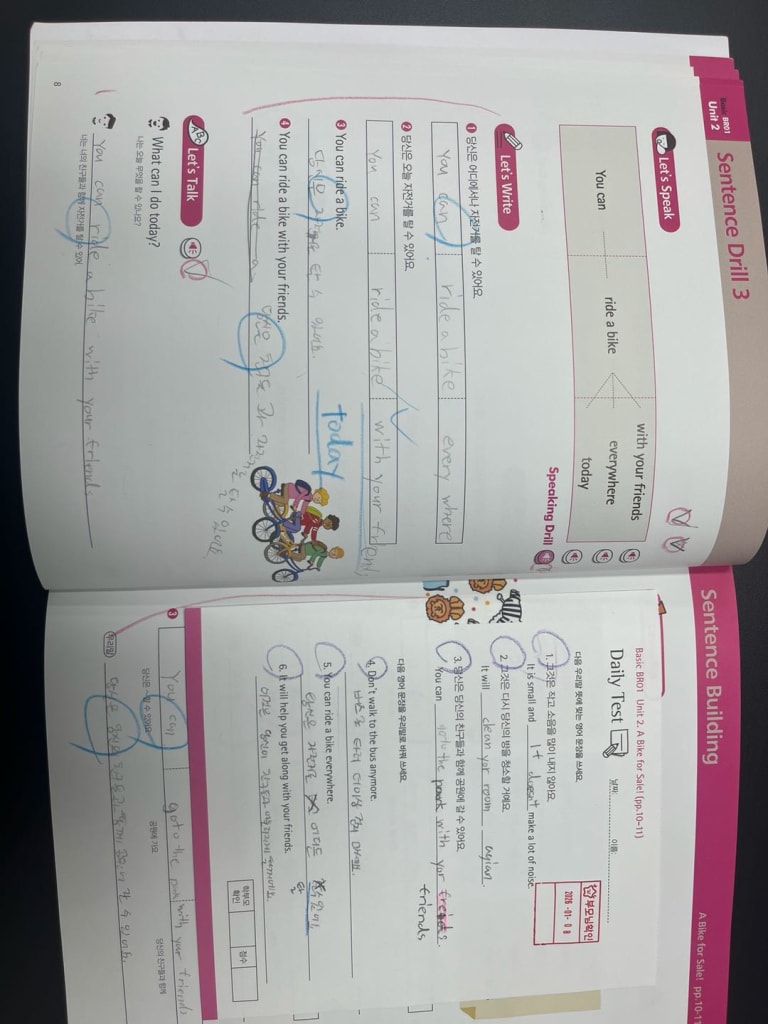 Basic BR01
Unit 2
Sentence Drill 3
Let's Speak
You can
ride a bike
with your friends
everywhere
today
Speaking Drill
Let's Write
1 당신은 어디에서나 자전거를 탈 수 있어요.
You can ride a bike every where
2 당신은 오늘 자전거를 탈 수 있어요.
You can ride a bike with your
today
3 You can ride a bike.
당신은 탈 수 있어요.
4 You can ride a bike with your friends.
You can ride a
탈 수 있어요
Let's Talk
What can I do today?
나는 오늘 무엇을 할 수 있나요?
You can ride a bike with your friends
너는 너의 친구들과 함께 자전거를 탈 수 있어.
8
Sentence Building
A Bike for Sale! pp.10-11
Basic BR01 Unit 2. A Bike for Sale! (pp.10-11)
Daily Test
날짜: 이름:
다음 우리말 뜻에 맞는 영어 문장을 쓰세요.
1. 그것은 작고 소음을 많이 내지 않아요.
It is small and It doesn't make a lot of noise.
2. 그것은 다시 당신의 방을 청소할 거예요.
It will clean yor room agian.
3. 당신은 당신의 친구들과 함께 공원에 갈 수 있어요.
You can goto the park with yor
friends
다음 영어 문장을 우리말로 바꿔 쓰세요.
4. Don't walk to the bus anymore.
5. You can ride a bike everywhere.
당신은 자전거를 어디든
6. It will help you get along with your friends.
부모님확인
학부모 확인
점수
3
You can goto the with your friends
당신은 ~할 수 있어요
공원에 가요
당신의 친구들과 함께
우리말
갈 수 있어요.